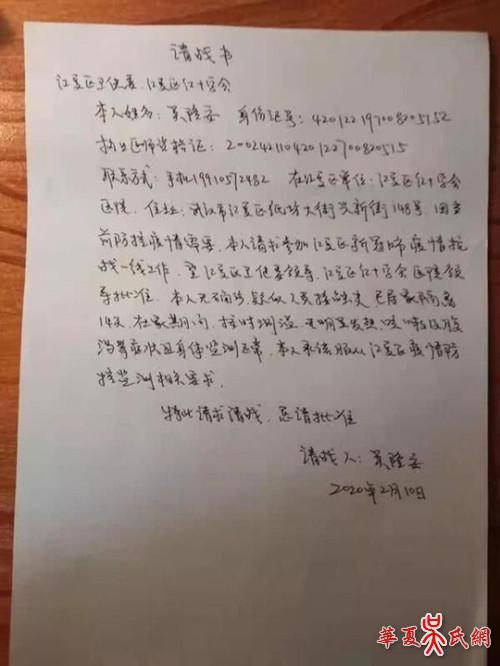 请战书
江夏区卫健委、江夏区红十字会
本人姓名：吴隆安 身份证号：420122197008205152
执业医师资格证：200242110420122700820515
联系方式：手机19910572482 在江夏单位：江夏区红十字会
医院，住址：武汉市江夏区纸坊大街兴新街148号，因当
前防控疫情需要，本人请求参加江夏区新冠肺疫情抗
战一线工作，望江夏区卫健委领导、江夏区红十字会医院领
导批准。本人无确诊，疑似人员接触史，已居家隔离
14天，在家期间，按时测温，无明显发热，咳嗽及腹
泻等症状且身体监测正常，本人承诺服从江夏区疫情防
控监测相关要求。
特此请求请战，恳请批准
请战人：吴隆安
2020年2月10日
華夏吴氏網